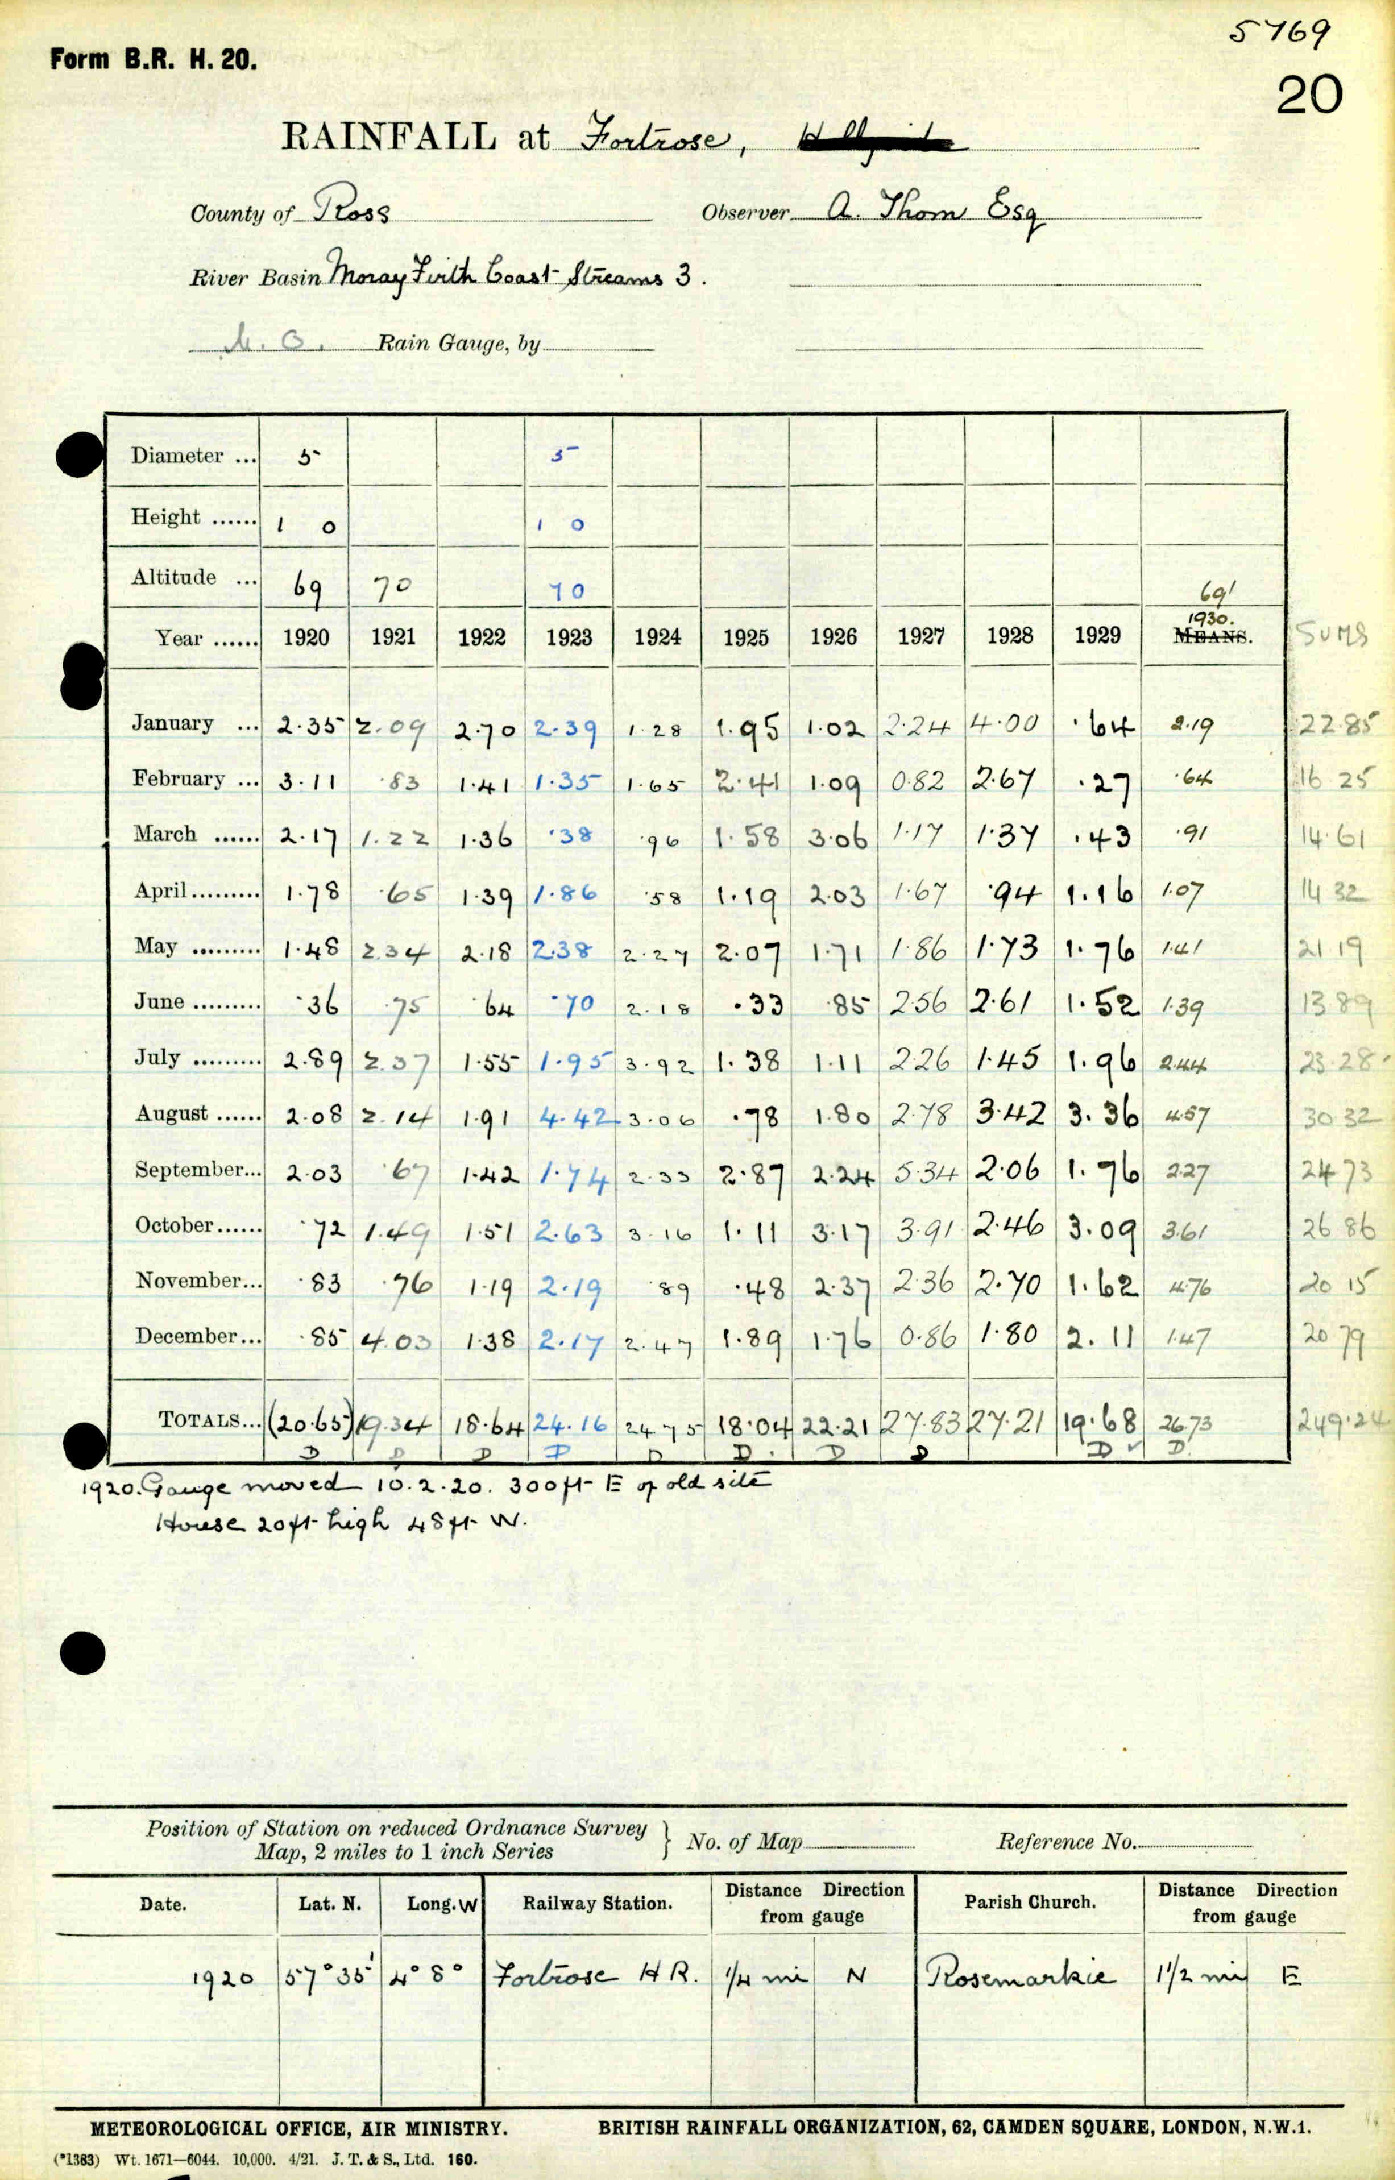 5769
Form B.R. H. 20.
20
RAINFALL at Fortrose,
County of Ross Observer A. Thom Esq
River Basin Moray Firth Coast Streams 3.
M.O. Rain Gauge, by
Diameter ... 5 5
Height ...... 1 0 1 0
Altitude ... 69 70 70 69'
Year ...... 1920 1921 1922 1923 1924 1925 1926 1927 1928 1929 1930. MEANS. SUMS
January ... 2.35 2.09 2.70 2.39 1.28 1.95 1.02 2.24 4.00 .64 2.19 22.85
February ... 3.11 .83 1.41 1.35 1.65 2.41 1.09 0.82 2.67 .27 .64 16 25
March ...... 2.17 1.22 1.36 .38 .96 1.58 3.06 1.17 1.37 .43 .91 14.61
April......... 1.78 .65 1.39 1.86 .58 1.19 2.03 1.67 .94 1.16 1.07 14 32
May ......... 1.48 2.34 2.18 2.38 2.27 2.07 1.71 1.86 1.73 1.76 1.41 21 19
June ......... .36 .75 .64 .70 2.18 .33 .85 2.56 2.61 1.52 1.39 13.89
July ......... 2.89 2.37 1.55 1.95 3.92 1.38 1.11 2.26 1.45 1.96 2.44 23.28
August ...... 2.08 2.14 1.91 4.42 3.06 .78 1.80 2.78 3.42 3.36 4.57 30 32
September... 2.03 .67 1.42 1.74 2.33 2.87 2.24 5.34 2.06 1.76 2.27 24 73
October...... .72 1.49 1.51 2.63 3.16 1.11 3.17 3.91 2.46 3.09 3.61 26 86
November... .83 .76 1.19 2.19 .89 .48 2.37 2.36 2.70 1.62 4.76 20 15
December... .85 4.03 1.38 2.17 2.47 1.89 1.76 0.86 1.80 2.11 1.47 20 79
TOTALS... (20.65) 19.34 18.64 24.16 24 75 18.04 22.21 27.83 27.21 19.68 26.73 249.24
D D D D D D D D D ✓ D.
1920. Gauge moved 10.2.20. 300ft E of old site
House 20ft high 48ft W.
Position of Station on reduced Ordnance Survey
Map, 2 miles to 1 inch Series } No. of Map Reference No.
Date. Lat. N. Long. W Railway Station. Distance Direction from gauge Parish Church. Distance Direction from gauge
1920 57° 35' 4° 8° Fortrose H R. 1/4 mi N Rosemarkie 1 1/2 mi E
METEOROLOGICAL OFFICE, AIR MINISTRY. BRITISH RAINFALL ORGANIZATION, 62, CAMDEN SQUARE, LONDON, N.W.1.
(*1383) Wt. 1671—6044. 10,000. 4/21. J. T. & S., Ltd. 160.